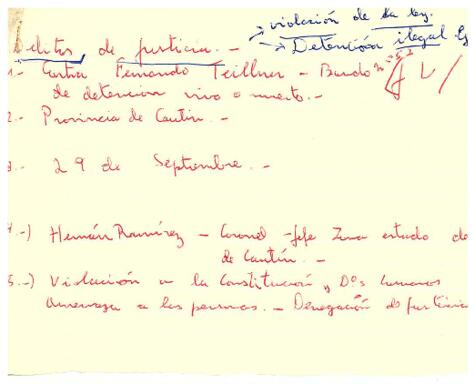 → violación de la ley.
Delitos de justicia. - → Detención ilegal
1.- Contra Fernando Teillier - Bando
de detención vivo o muerto. -
2.- Provincia de Cautín. -
3.- 29 de Septiembre. -
4.-) Hernán Ramírez - Coronel - Jefe Zona estado de
de Cautín. -
5.-) Violación a la Constitución y D°s humanos
Amenaza a las personas. - Denegación de justicia